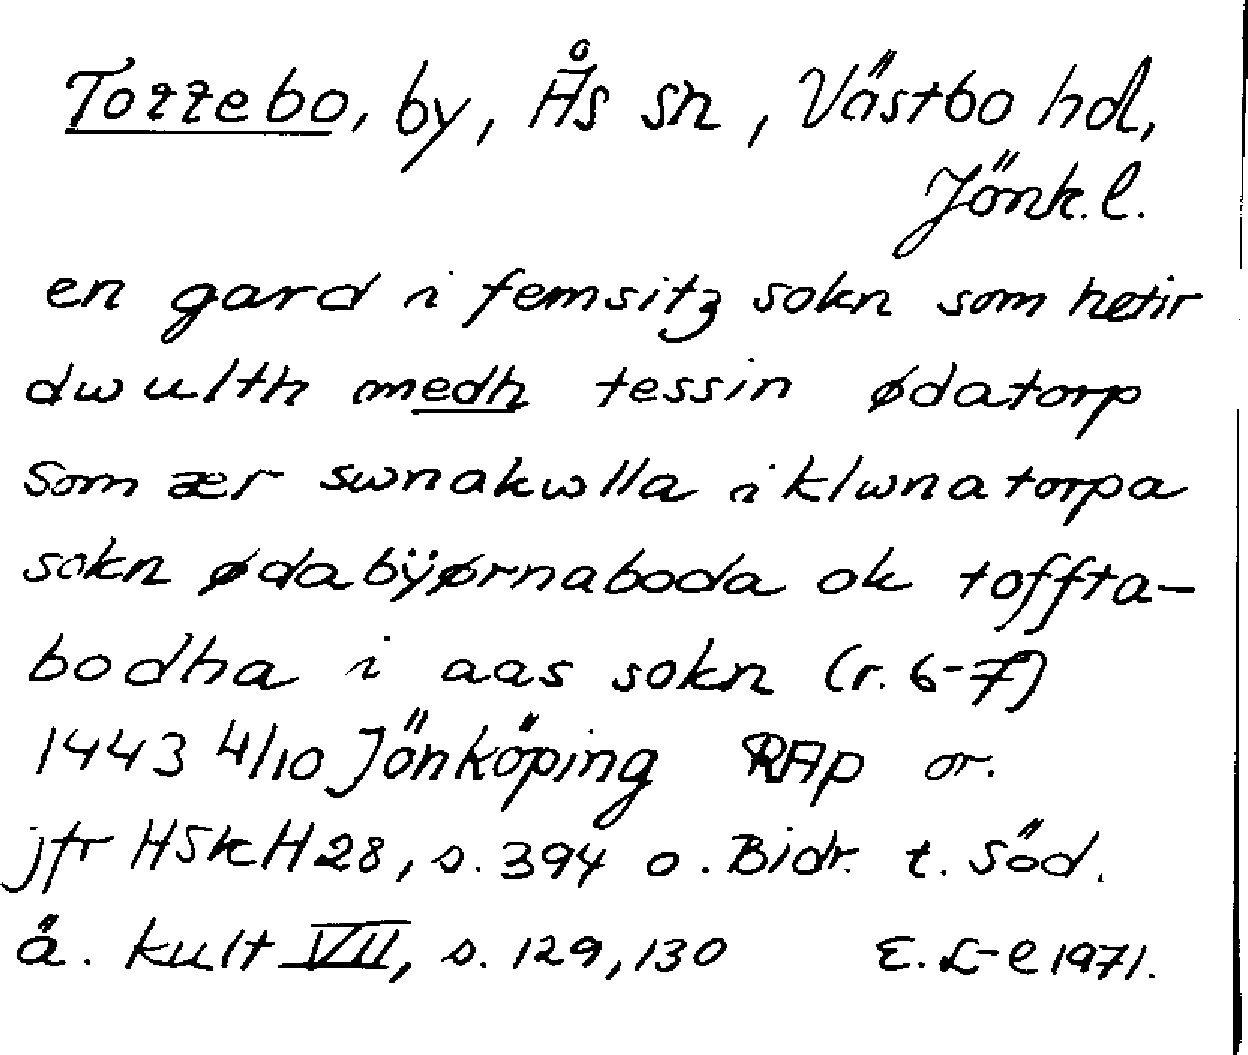 Tottebo, by, Ås sn, Västbo hd,
Jönk. l.
en gard i femsitz sokn som hetir
dwulth medh tessin ødatorp
som ær swnakwlla i klwnatorpa
sokn ødabÿørnaboda ok toffta-
bodha i aas sokn (r. 6-7)
1443 4/10 Jönköping RAp or.
jfr HSkH 28, s. 394 o. Bidr. t. Söd.
ä. kult VII, s. 129, 130 E. L-e 1971.